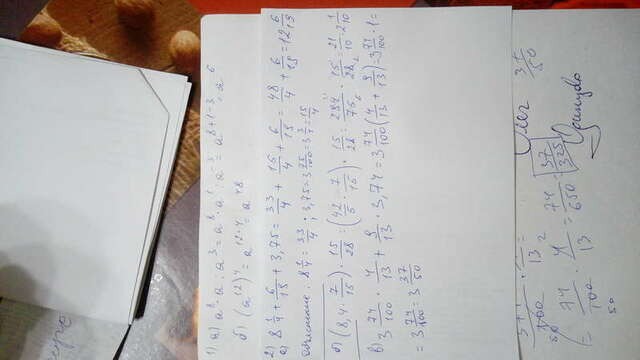 1) а) a⁸·a : a³ = a⁸·a¹ : a⁻³ = a⁸⁺¹⁻³ = a⁶
б) (a¹²)⁴ = a¹²⁺⁴ = a⁴⁸
2) а) 8 1/4 + 6/13 + 3,75 = 33/4 + 15/4 + 6/13 = 48/4 + 6/13 = 12 6/13
Объяснение. 8 1/4 = 33/4 ; 3,75 = 3 75/100 = 3 3/4 = 15/4
б) (8,4 · 7/15) · 15/28 = (42/5 · 7/15) · 15/28 = 294/75 · 15/28 = 21/10 = 2 1/10
в) 3 74/100 · 4/13 + 9/13 · 3,74 = 3 74/100 (4/13 + 9/13) = 3 74/100 · 1 =
= 3 74/100 = 3 37/50
= 74/100 · 4/13 = 74/650 = 37/325
50
37/50